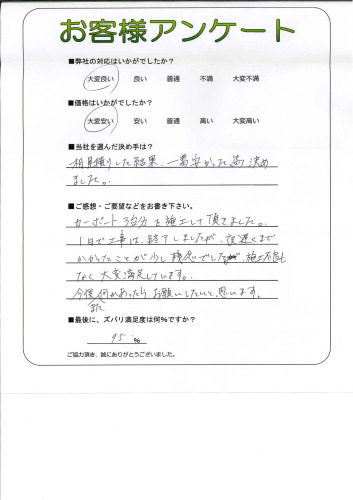 お客様アンケート
■弊社の対応はいかがでしたか？
大変良い 良い 普通 不満 大変不満
■価格はいかがでしたか？
大変安い 安い 普通 高い 大変高い
■当社を選んだ決め手は？
相見積りした結果、一番安かった為決め
ました。
■ご感想・ご要望などをお書き下さい。
カーポート3台分を施工して頂きました。
1日で工事は終了しましたが、夜遅くまで
かかったことが少し残念でしたが、施工不良も
なく大変満足しています。
今後また何かあったらお願いしたいと思います。
■最後に、ズバリ満足度は何%ですか？
95 %
ご協力頂き、誠にありがとうございました。